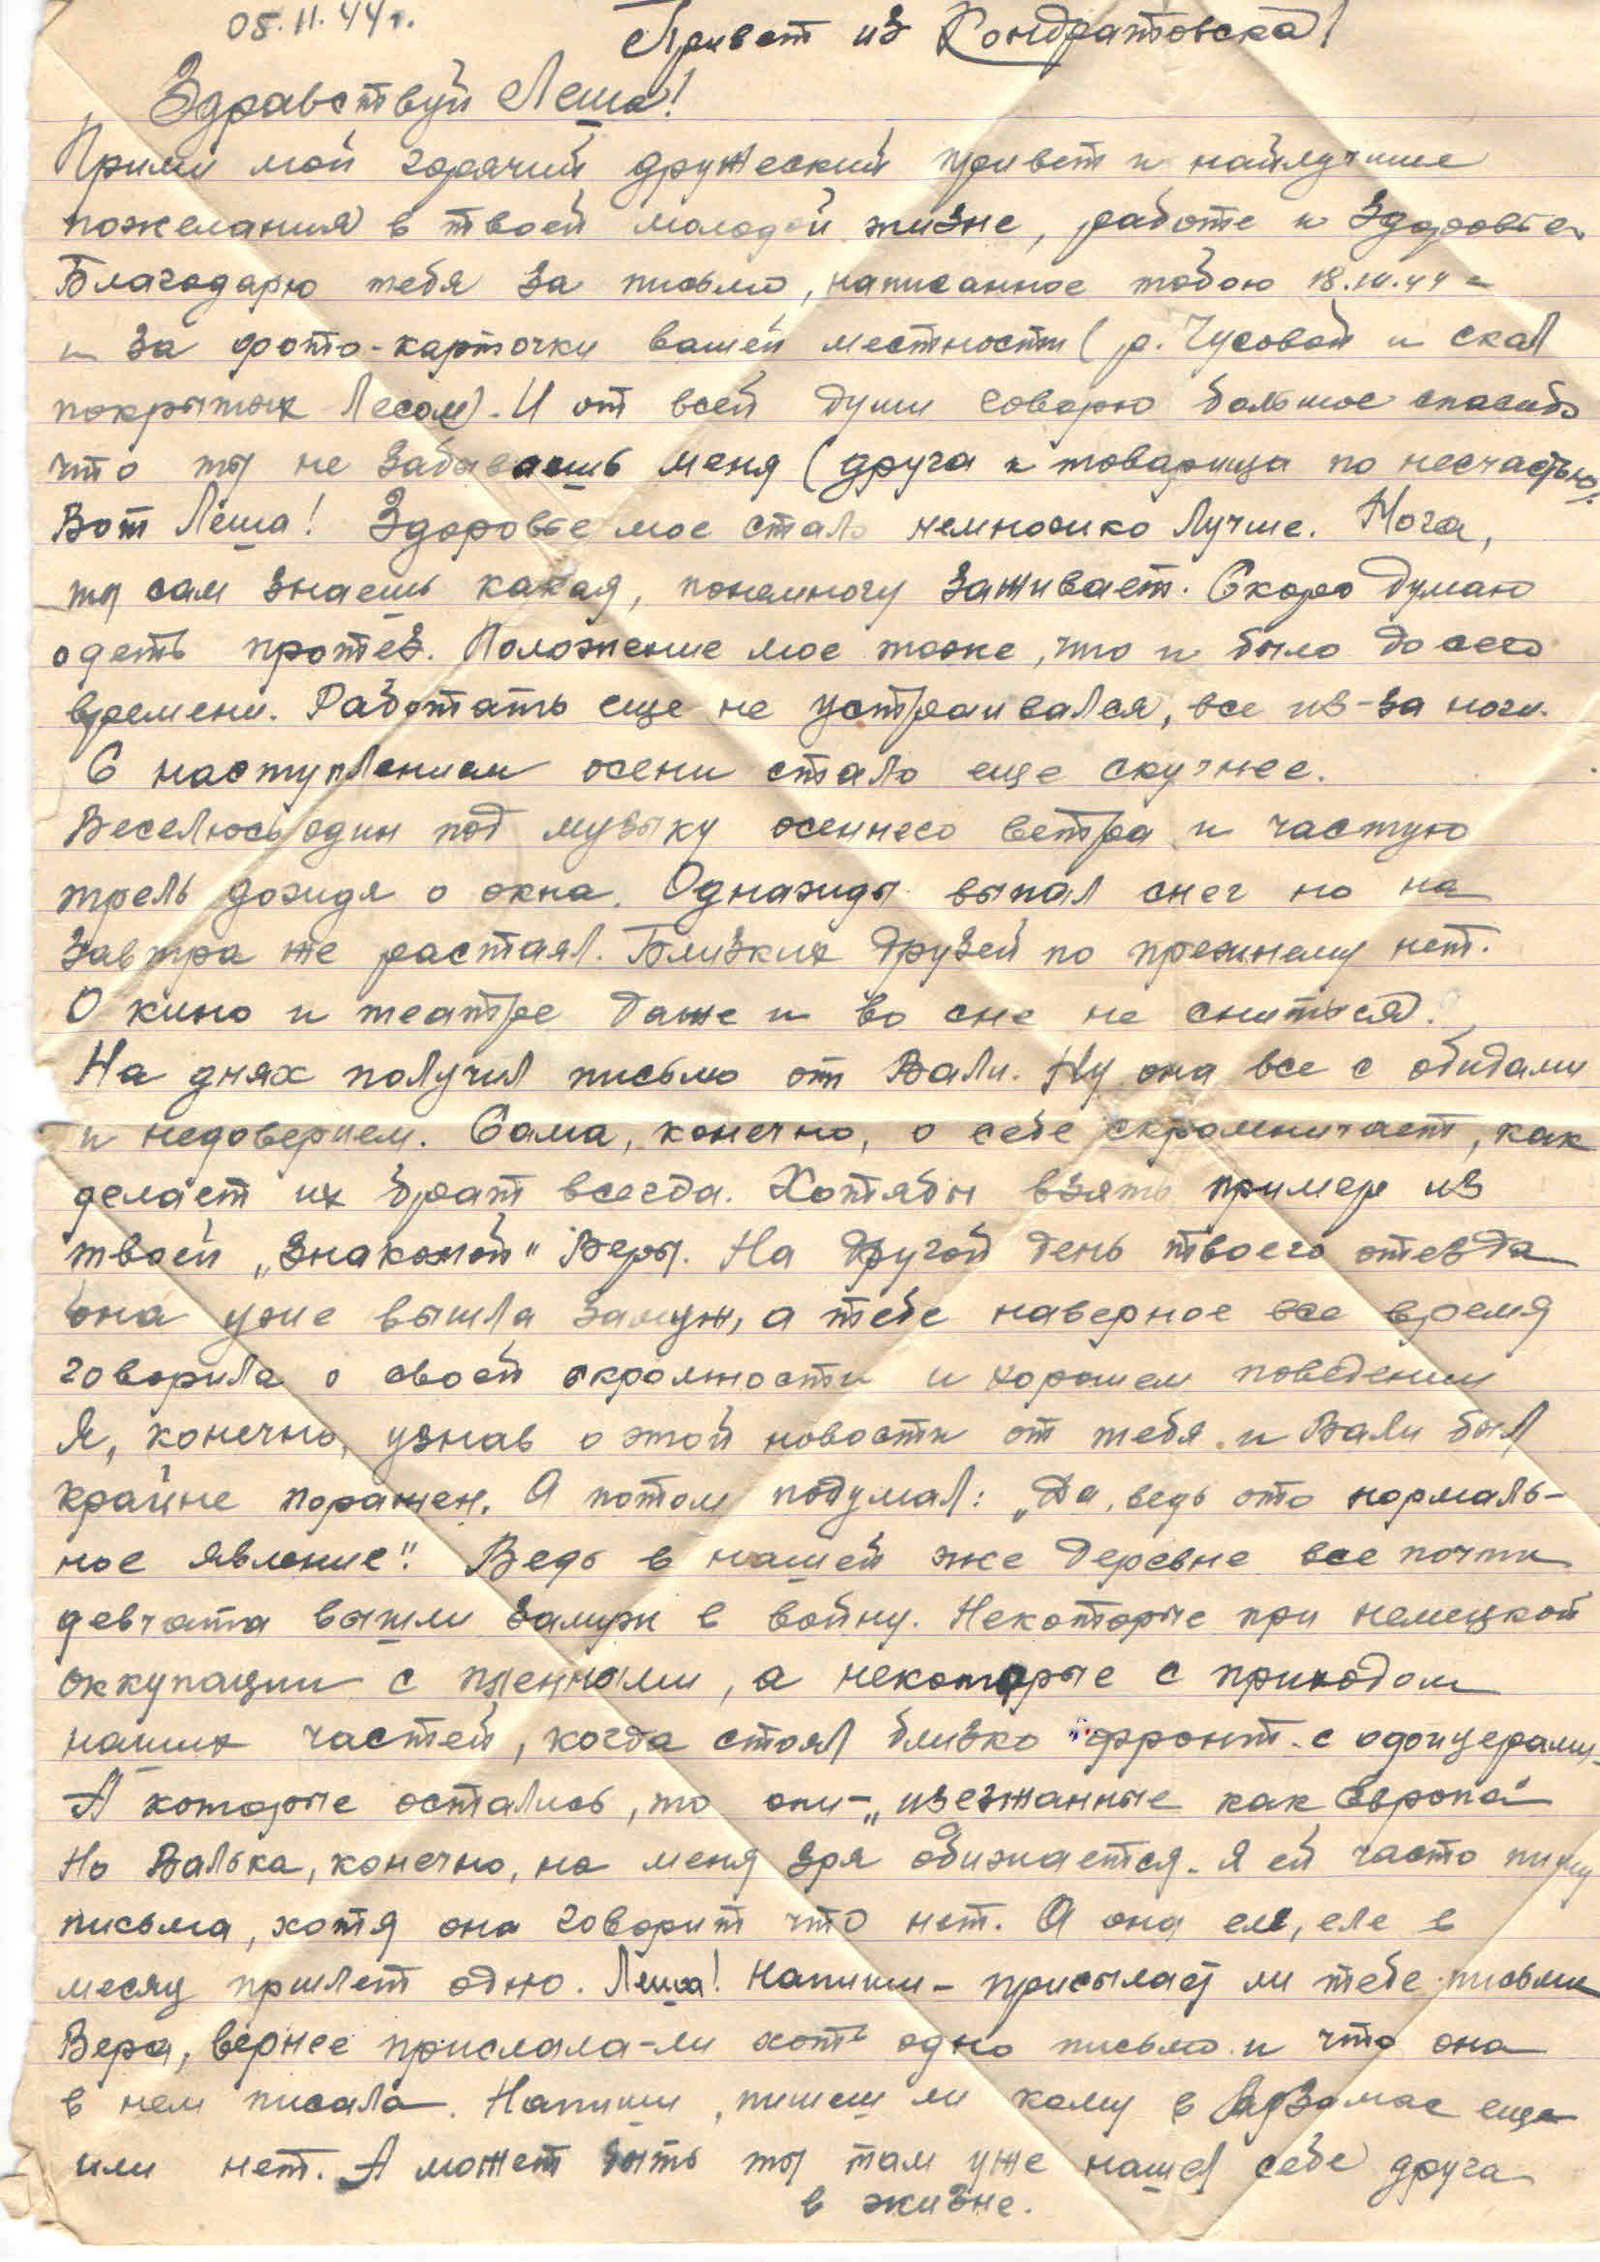 08.11.44 г.
Привет из Кондратовска!
Здравствуй Леша!
Прими мой горячий дружеский привет и найлучшие
пожелания в твоей молодой жизне, работе и здоровье.
Благодарю тебя за письмо, написанное тобою 18.10.44 г
и за фото-карточки вашей местности (р. Чусовой и скал
покрытых лесом). И от всей души говорю большое спасибо
что ты не забываешь меня (друга и товарища по несчастью).
Вот Леша! Здоровье мое стало немножко лучше. Нога,
ты сам знаешь какая, понемногу заживает. Скоро думаю
одеть протез. Положение мое тоже, что и было до сего
времени. Работать еще не устраивался, все из-за ноги.
С наступлением осени стало еще скучнее.
Веселюсь один под музыку осеннего ветра и частую
трель дождя о окна. Однажды выпал снег но на
завтра же растаял. Близких друзей по прежнему нет.
О кино и театре даже и во сне не снится.
На днях получил письмо от Вали. Ну она все с обидами
и недоверием. Сама, конечно, о себе скромничает, как
делает их брат всегда. Хотябы взять пример из
твоей „знакомой" Веры. На другой день твоего отезда
она уже вышла замуж, а тебе наверное все время
говорила о своей скромности и хорошем поведении
Я, конечно, узнав о этой новости от тебя и Вали был
крайне поражен. А потом подумал: „Да, ведь это нормаль-
ное явление". Ведь в нашей же деревне все почти
девчата вышли замуж в войну. Некоторые при немецкой
оккупации с пленными, а некоторые с приходом
наших частей, когда стоял близко фронт с офицерами.
А которые остались, то они - „изезжанные как Европа"
Но Валька, конечно, на меня зря обижается. Я ей часто пишу
письма, хотя она говорит что нет. А она еле, еле в
месяц пришлет одно. Леша! Напиши - присылает ли тебе письма
Вера, вернее прислала-ли хоть одно письмо и что она
в нем писала. Напиши, пишеш ли кому в Арзамас еще
или нет. А может быть ты там уже нашел себе друга
в жизне.